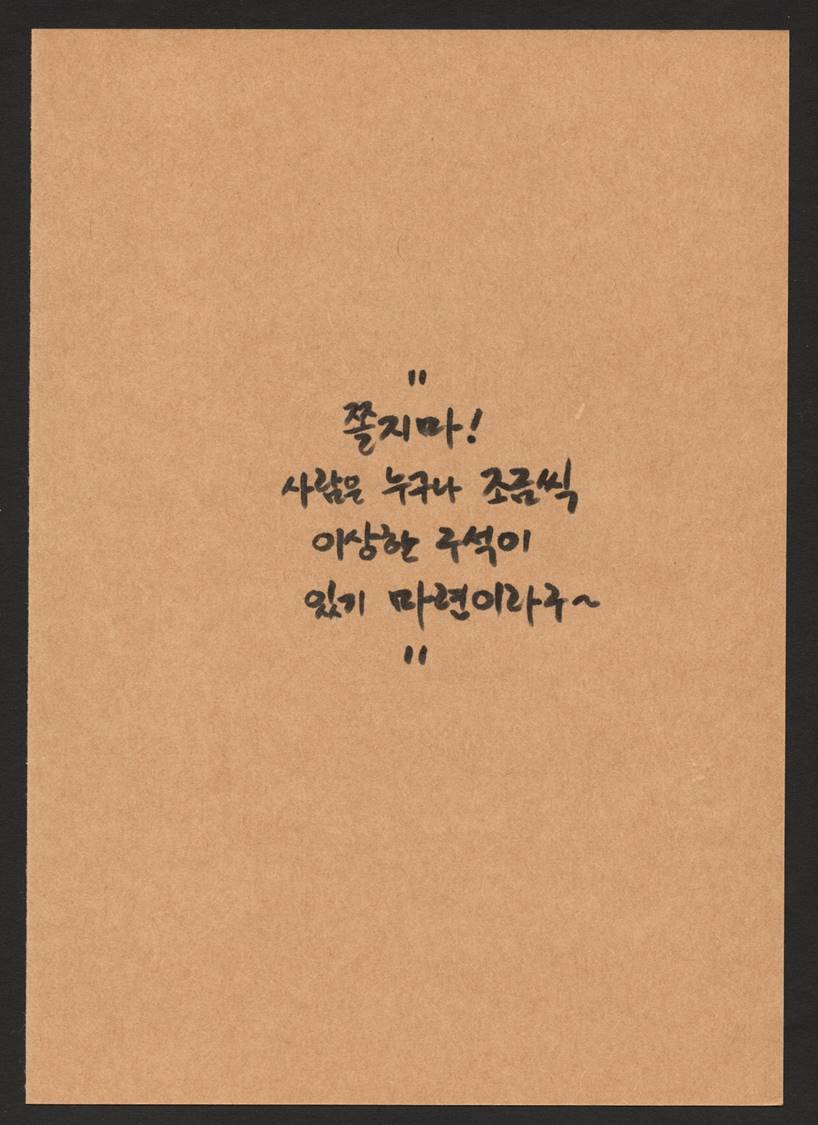 "
쫄지마!
사람은 누구나 조금씩
이상한 구석이
있기 마련이라구~
"